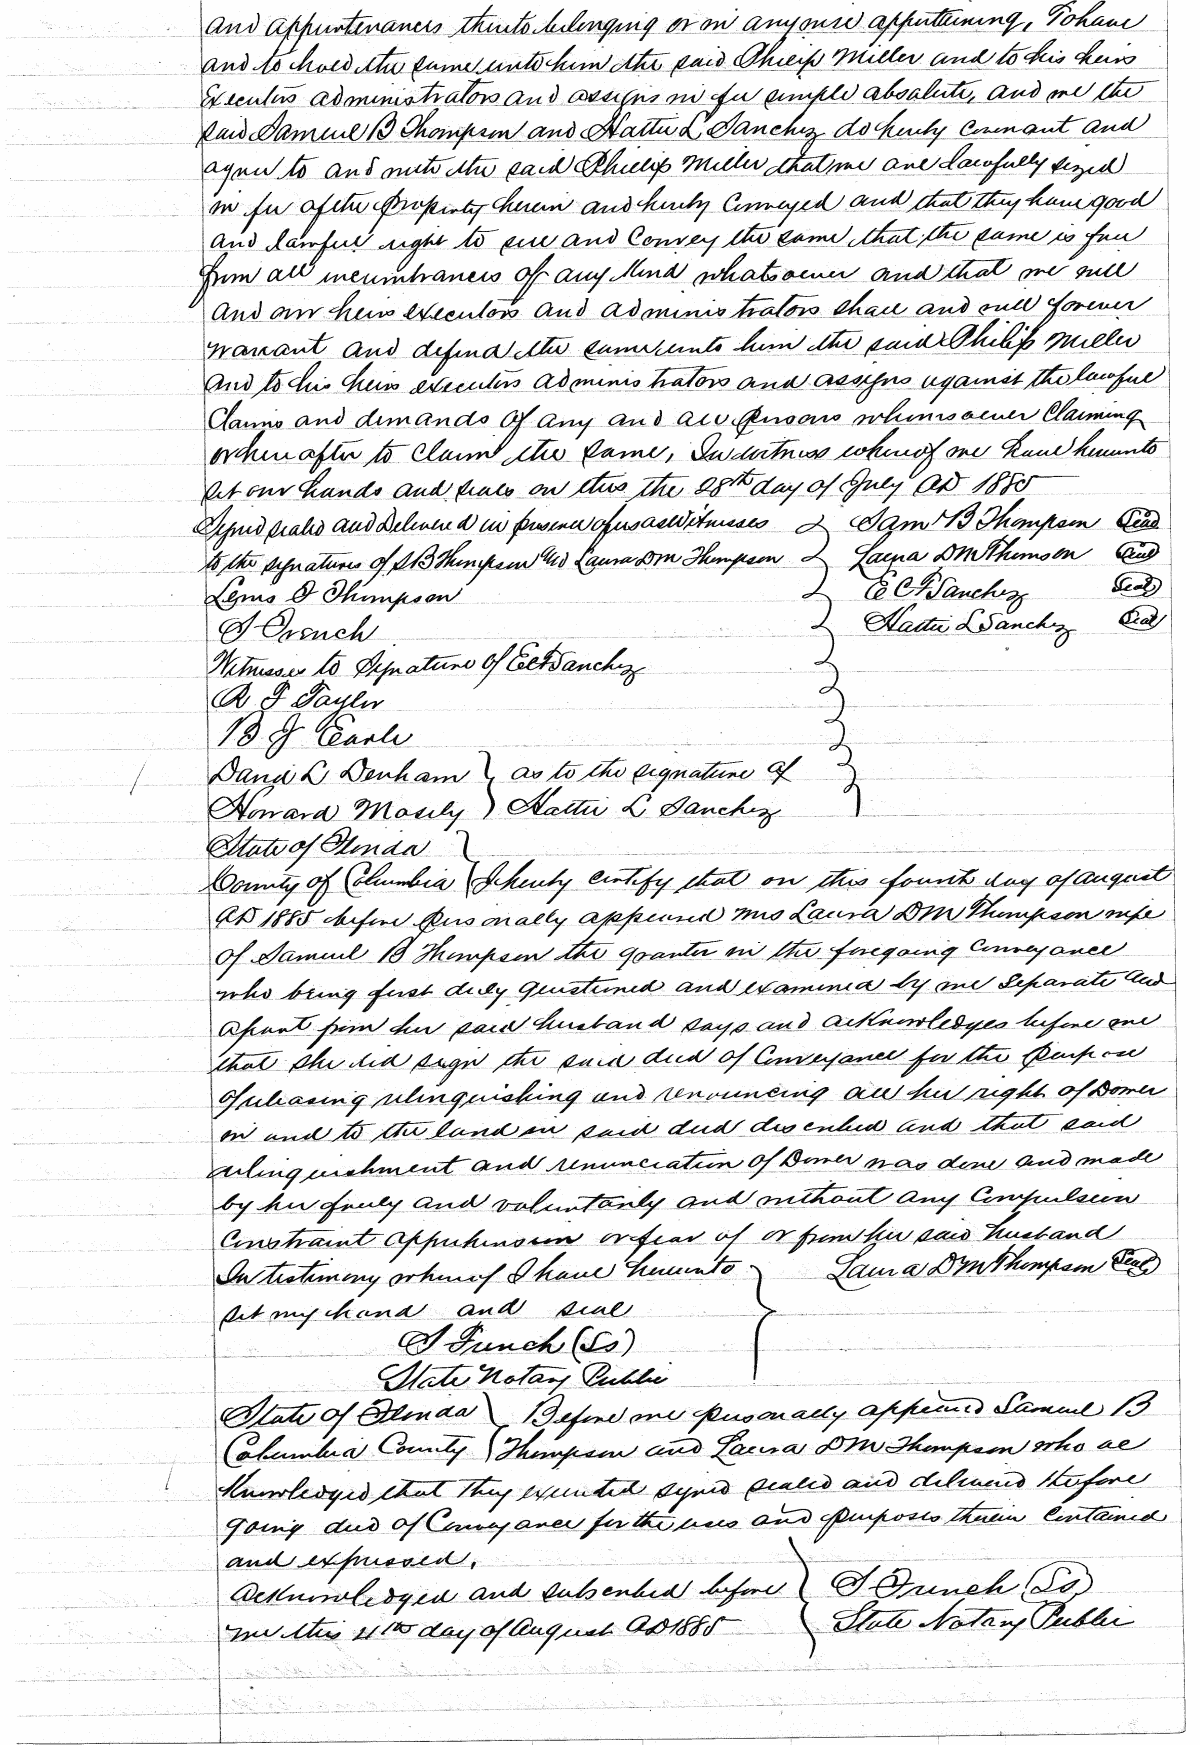 and appurtenances thereto belonging or in anywise appertaining, To have
and to hold the same unto him the said Philip Miller and to his heirs
Executors administrators and assigns in fee simple absolute, and we the
said Samuel B Thompson and Hattie L Sanchez do hereby covenant and
agree to and with the said Philip Miller that we are lawfully seized
in fee of the property herein and hereby Conveyed and that they have good
and lawful right to sell and Convey the same that the same is free
from all incumbrances of any kind whatsoever and that we will
and our heirs executors and administrators shall and will forever
warrant and defend the same unto him the said Philip Miller
and to his heirs executors administrators and assigns against the lawful
Claims and demands of any and all persons whomsoever Claiming
or hereafter to Claim the same, In witness whereof we have hereunto
set our hands and seals on this the 28th day of July AD 1885
Signed sealed and Delivered in presence of us as Witnesses Sam'l B Thompson Seal
to the signatures of S B Thompson and Laura DM Thompson Laura DM Thomson Seal
Lewis O Thompson E C F Sanchez Seal
Hattie L Sanchez Seal
Witnesses to Signature of E C F Sanchez
R F Taylor
B J Earle
David L Denham } as to the signature of
Howard Mosely } Hattie L Sanchez
State of Florida
County of Columbia I hereby certify that on this fourth day of August
AD 1885 before personally appeared Mrs Laura DM Thompson wife
of Samuel B Thompson the grantor in the foregoing Conveyance
who being first duly questioned and examined by me Separate and
apart from her said husband says and acknowledges before me
that she did sign the said deed of Conveyance for the purpose
of releasing relinquishing and renouncing all her right of Dower
in and to the land in said deed described and that said
relinquishment and renunciation of Dower was done and made
by her freely and voluntarily and without any Compulsion
Constraint apprehension or fear of or from her said husband
In testimony whereof I have hereunto Laura DM Thompson Seal
set my hand and seal
(Ls)
State Notary Public
State of Florida } Before me personally appeared Samuel B
Columbia County } Thompson and Laura DM Thompson who ac
knowledged that they executed signed sealed and delivered the fore
going deed of Conveyance for the uses and purposes therein Contained
and expressed.
Acknowledged and subscribed before } (Ls)
me this 4th day of August AD 1885 } State Notary Public